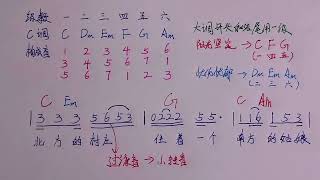 级数 一 二 三 四 五 六
C调 C Dm Em F G Am
1 2 3 4 5 6
3 4 5 6 7 1
5 6 7 1 2 3
大调开头和结尾用一级
→ C F G
(一 四 五)
→ Dm Em Am
(二 三 六)
C Em G C Am
3 3 3 5 6 5 3 | 0 2 2 2 5 5 | 1 1 6 1 5 3 |
北方的 住着一个 南方的姑娘
过渡音 →